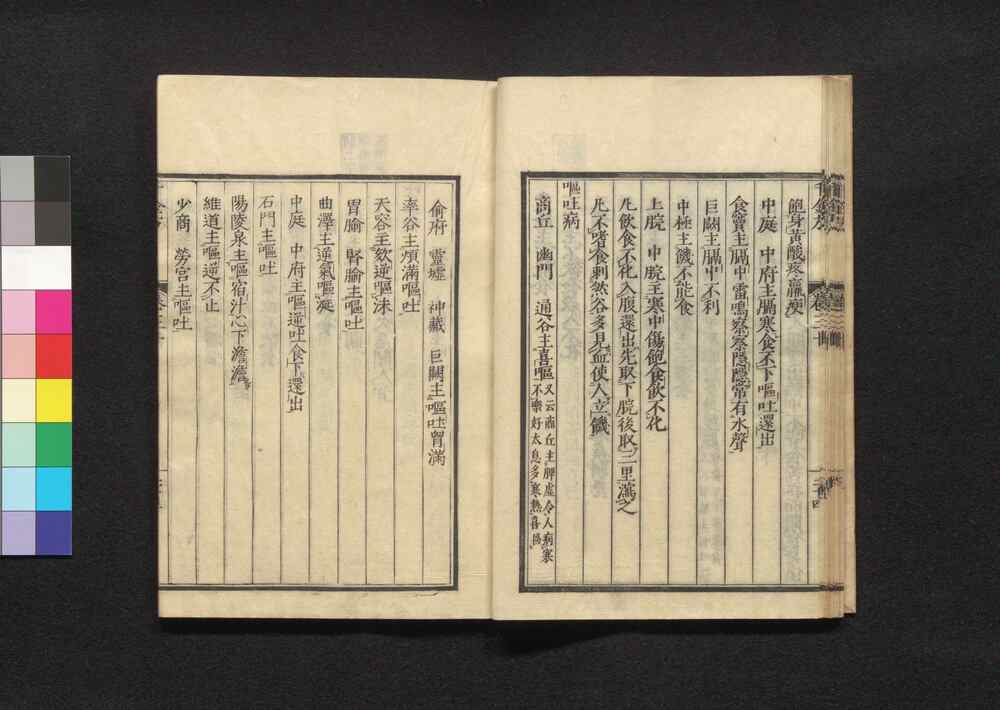 飽身黃酸疼羸瘦
中庭　中府主膈寒食不下嘔吐還出
食竇主膈中雷鳴察察隱隱常有水聲
巨闕主膈中不利
中極主饑不能食
上脘　中脘主寒中傷飽食飲不化
凡飲食不化入腹還出先取下脘後取三里瀉之
凡不嗜食刺然谷多見血使人立饑
嘔吐病
商丘主　幽門　通谷主喜嘔又云商丘主脾虛令人病寒不樂好太息多寒熱喜嘔
俞府　靈墟　神藏　巨闕主嘔吐胷滿
率谷主煩滿嘔吐
天容主欬逆嘔沫
胃腧　腎腧主嘔吐
曲澤主逆氣嘔涎
中庭　中府主嘔逆吐食下還出
石門主嘔吐
陽陵泉主嘔宿汁心下澹澹
維道主嘔逆不止
少商　勞宮主嘔吐